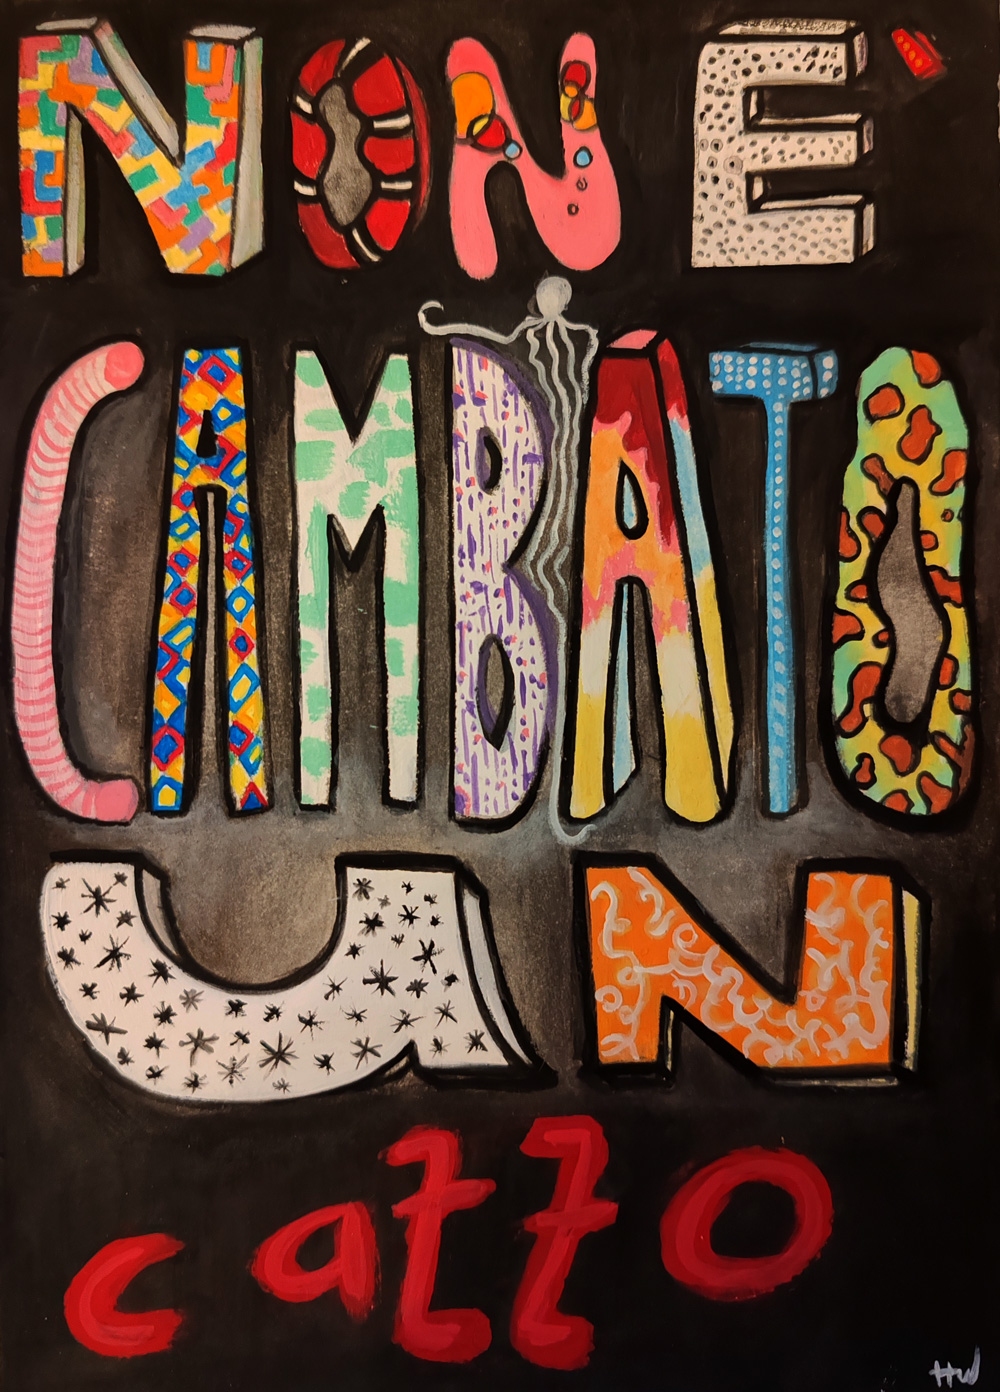 NON E'
CAMBIATO
UN
cazzo
HW